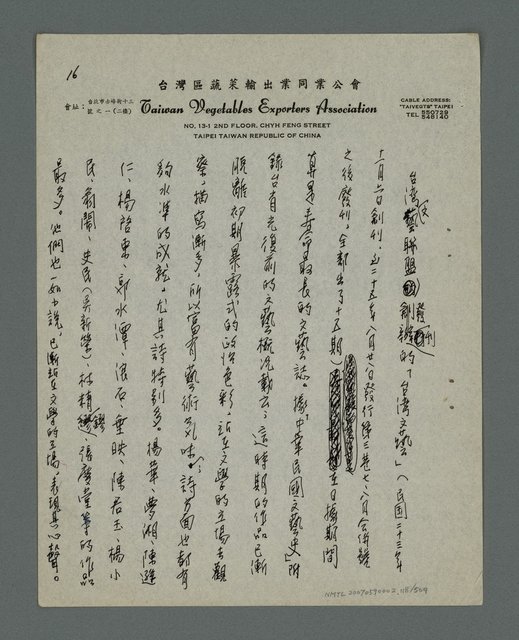 16
台灣區蔬菜輸出業同業公會
會址：台北市赤峰街十三號之一（二樓）
Taiwan Vegetables Exporters Association
CABLE ADDRESS:
"TAIVEGTB" TAIPEI
TEL 550729
548140
NO, 13-1 2ND FLOOR, CHYH FENG STREET
TAIPEI TAIWAN REPUBLIC OF CHINA
台湾文藝聯盟創辦發刊的「台湾文藝」（民國二十三年
十一月五日創刊，迄二十五年八月廿八日發行第三卷七、八月合併號
之後廢刊，全部出了十五期 在日據期間
算是壽命最長的文藝誌。據「中華民國文藝史」附
錄台省光復前的文藝概況載云，這時期的作品已漸
脫離初期暴露式的政治色彩，站在文學的立場去觀
察，描寫漸多，所以富有藝術氣味。詩方面也都有
夠水準的成就。尤其詩特別多。楊華、夢湘、陳遜
仁、楊啓東、郭水潭、浪石、垂映、陳君玉、楊小
民、翁鬧、史民（吳新榮）、林精鏐、張慶堂等的作品
最多。他們也一如小說，已漸站在文學的立場，表現其心聲。
NMTL 20070590002 118/504